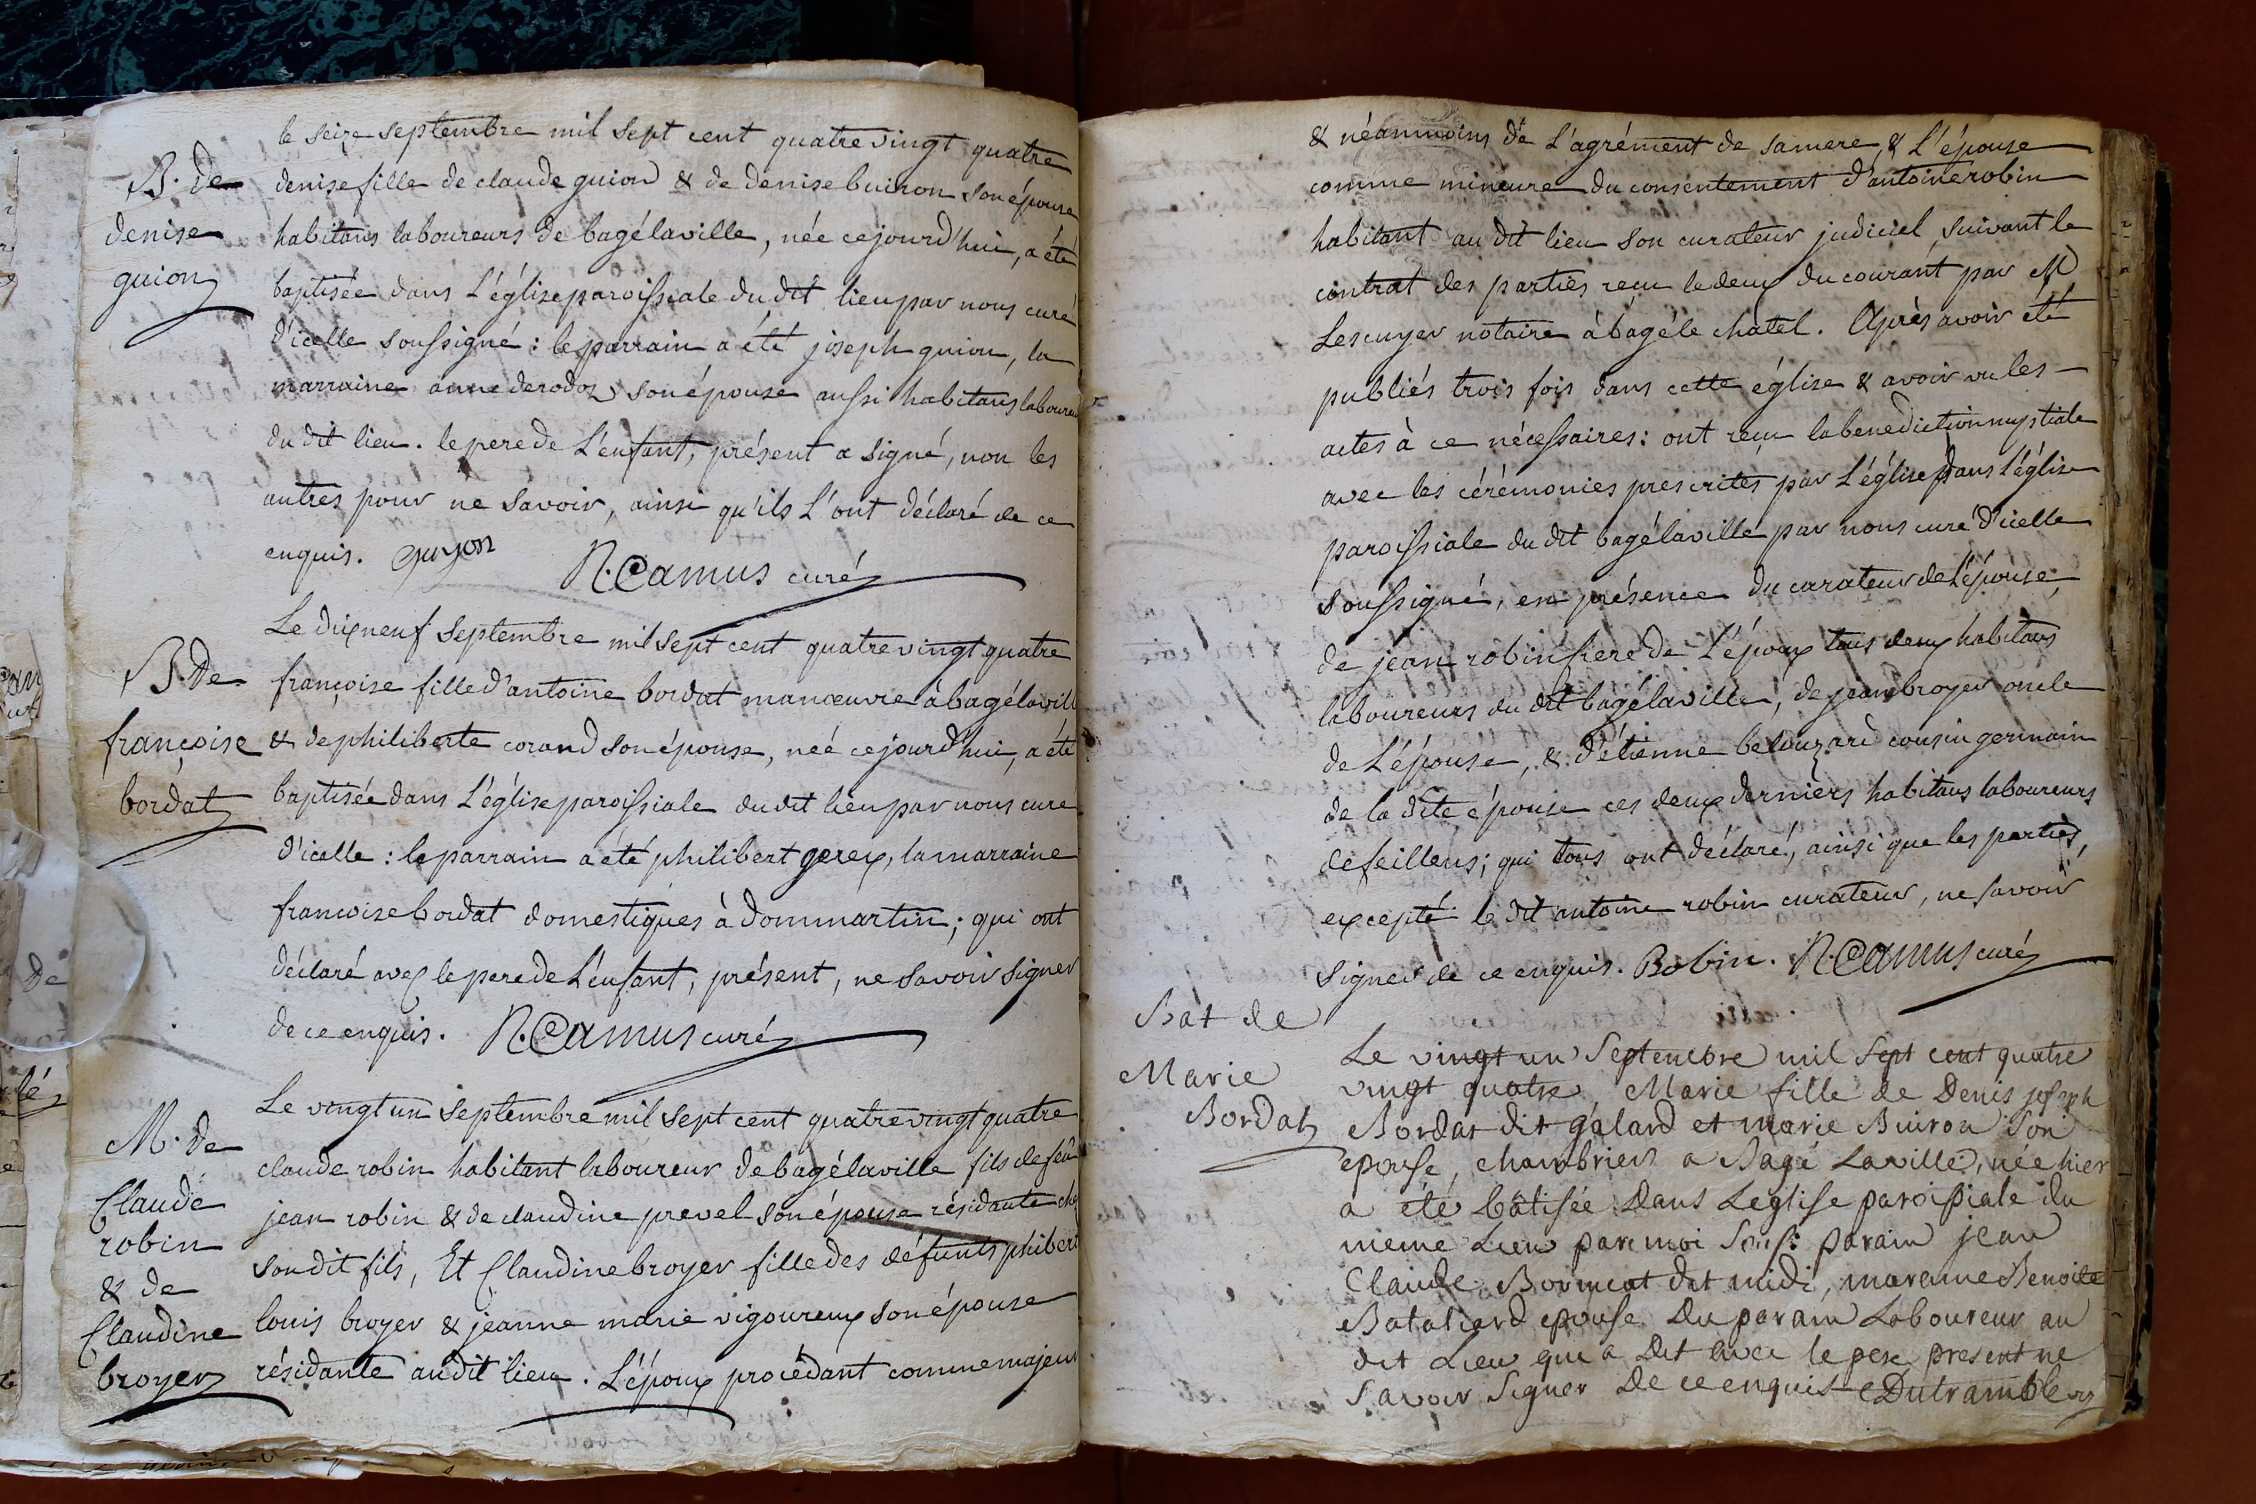 B. de
denise
guion
le seize septembre mil sept cent quatre vingt quatre
denise fille de claude guion & de denise buiron son épouse
habitans laboureurs de bagélaville, née cejourd'hui, a été
baptisée dans l'église paroissiale du dit lieu par nous curé
d'icelle soussigné : le parrain a été joseph guion, la
marraine anne derodoz son épouse aussi habitans laboureurs
du dit lieu. le pere de l'enfant, présent a signé, non les
autres pour ne savoir, ainsi qu'ils l'ont déclaré de ce
enquis. guyon N. Camus curé
B. de
françoise
bordat
Le dixneuf septembre mil sept cent quatre vingt quatre
françoise fille d'antoine bordat manœuvre à bagélavill
& de philiberte corand son épouse, neé cejourd'hui, a été
baptisée dans l'église paroissiale du dit lieu par nous cure
d'icelle : le parrain a été philibert gerex, la marraine
francoise bordat domestiques à dommartin; qui ont
déclaré avec le pere de l'enfant, présent, ne savoir signer
de ce enquis. N. Camus curé
M. de
Claude
robin
& de
Claudine
broyer
Le vingt un septembre mil sept cent quatre vingt quatre
claude robin habitant laboureur de bagélaville fils de feu
jean robin & de claudine prevel son épouse résidante ché
son dit fils, Et Claudine broyer fille des défunts phibert
louis broyer & jeanne marie vigoureux son épouse
résidante au dit lieu. L'époux procédant comme majeur
& néanmoins de l'agrément de sa mere, & l'épouse
comme mineure du consentement d'antoine robin
habitant au dit lieu son curateur judiciel, suivant le
contrat des parties recu le deux du courant par M
Lescuyer notaire à bagé le chatel. Après avoir été
publiés trois fois dans cette église & avoir vu les
actes à ce nécessaires : ont recu la benediction nuptiale
avec les cérémonies prescrites par l'église, dans l'église
paroissiale du dit bagélaville par nous curé d'icelle
soussigné, en présence du curateur de l'épouse,
de jean robin frere de l'époux tous deux habitans
laboureurs du dit bagélaville, de jean broyer oncle
de l'épouse, & d'étienne belouzard cousin germain
de la dite épouse ces deux derniers habitans laboureurs
defeillens; qui tous ont déclaré, ainsi que les parties,
excepté le dit antoine robin curateur, ne savoir
signer de ce enquis. Robin. N. Camus curé
Bat de
Marie
Bordat
Le vingt un Septembre mil Sept cent quatre
vingt quatre, Marie fille de Denis joseph
Bordat dit galard et marie Buiron Son
epouse, chambriers a Bagé Laville, née hier
a été bâtisée dans Leglise paroissiale du
meme Lieu par moi Souss: parain jean
Claude dit midi, maraine Benoite
Bataliard epouse Du parain Laboureur au
dit Lieu qui a Dit avec le pere present ne
Savoir Signer De ce enquis Dutrambley